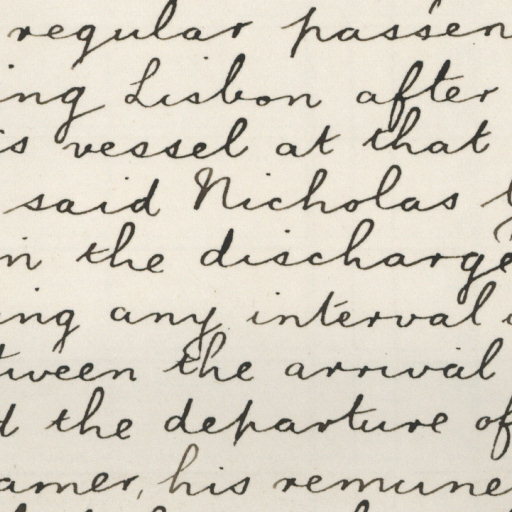 regular passen
ing Lisbon after
is vessel at that
said Nicholas
in the discharge
ing any interval
tween the arrival
d the departure of
amer, his remune